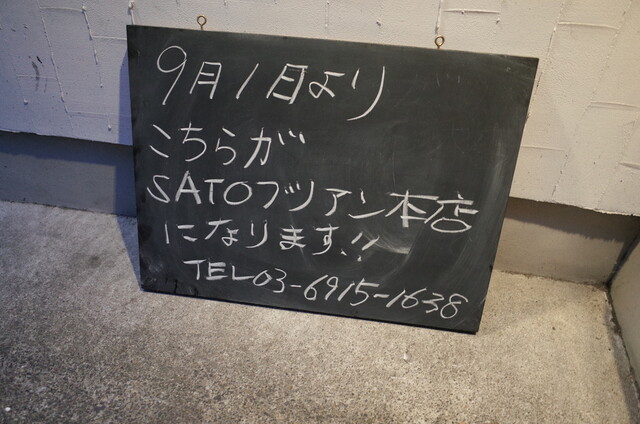 9月1日より
こちらが
SATOブツアン本店
になります!!
TEL03-6915-1638